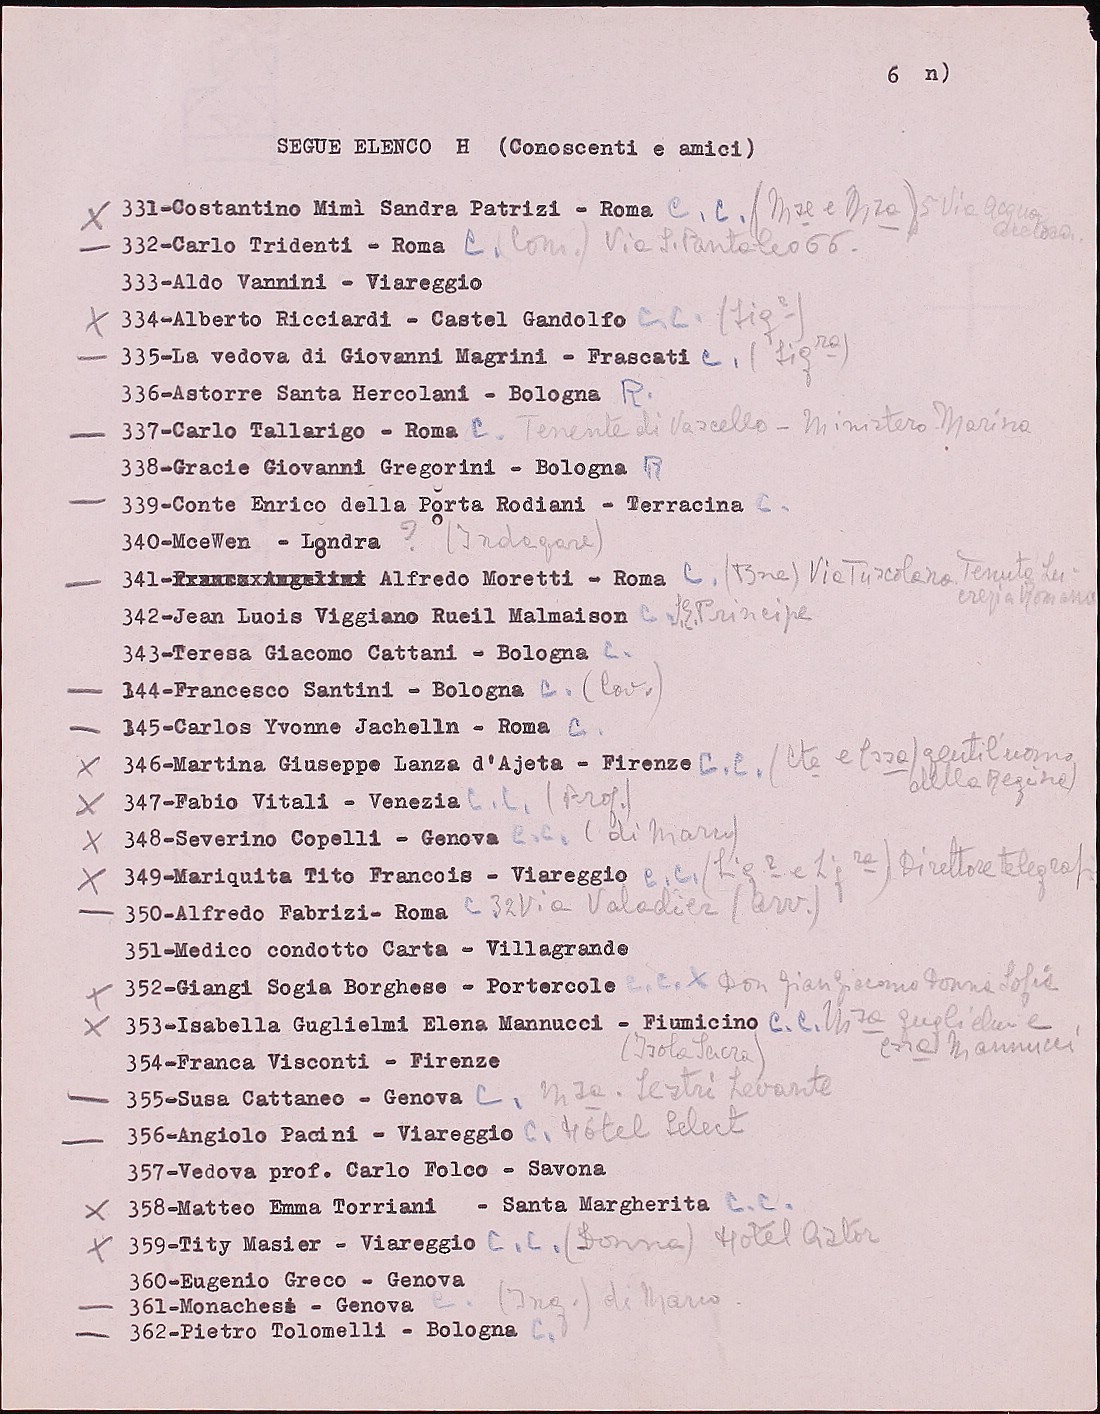 6 n)
SEGUE ELENCO H (Conoscenti e amici)
331-Costantino Mimì Sandra Patrizi - Roma C. C. (Mse e Msa) 5 Via Acqua
332-Carlo Tridenti - Roma C. (Com.) Via S. Pantaleo 66.
333-Aldo Vannini - Viareggio
334-Alberto Ricciardi - Castel Gandolfo C.C. (Sigr)
335-La vedova di Giovanni Magrini - Frascati C. (Sigra)
336-Astorre Santa Hercolani - Bologna R.
337-Carlo Tallarigo - Roma C. Tenente di Vascello - Ministero Marina
338-Gracie Giovanni Gregorini - Bologna R
339-Conte Enrico della Porta Rodiani - Terracina C.
340-MceWen - Londra ? (Indagare)
341-Franca Angelini Alfredo Moretti - Roma C. (Bne) Via Tuscolana Tenuta Lu-
crezia Romana
342-Jean Luois Viggiano Rueil Malmaison C. S.E. Principe
343-Teresa Giacomo Cattani - Bologna C.
344-Francesco Santini - Bologna C. (Cav.)
345-Carlos Yvonne Jachelln - Roma C.
346-Martina Giuseppe Lanza d'Ajeta - Firenze C.C. (Cte e Cssa) gentil'uomo
della Regina)
347-Fabio Vitali - Venezia C.C. (Prof.)
348-Severino Copelli - Genova C.C. (di Mario)
349-Mariquita Tito Francois - Viareggio C.C. (Sigr e Sigra) Direttore telegrafi
350-Alfredo Fabrizi- Roma C 32 Via Valadier (Avv.)
351-Medico condotto Carta - Villagrande
352-Giangi Sogia Borghese - Portercole C.C. X Don Giangiacomo Donna Sofia
353-Isabella Guglielmi Elena Mannucci - Fiumicino C.C. Msa Guglielmi e
(Isola Sacra) Mannucci
354-Franca Visconti - Firenze
355-Susa Cattaneo - Genova C. Msa. Sestri Levante
356-Angiolo Pacini - Viareggio C. Hôtel Select
357-Vedova prof. Carlo Folco - Savona
358-Matteo Emma Torriani - Santa Margherita C.C.
359-Tity Masier - Viareggio C.C. (Donna) Hotel Astor
360-Eugenio Greco - Genova
361-Monachesi - Genova C. (Ing.) di Mario.
362-Pietro Tolomelli - Bologna C.